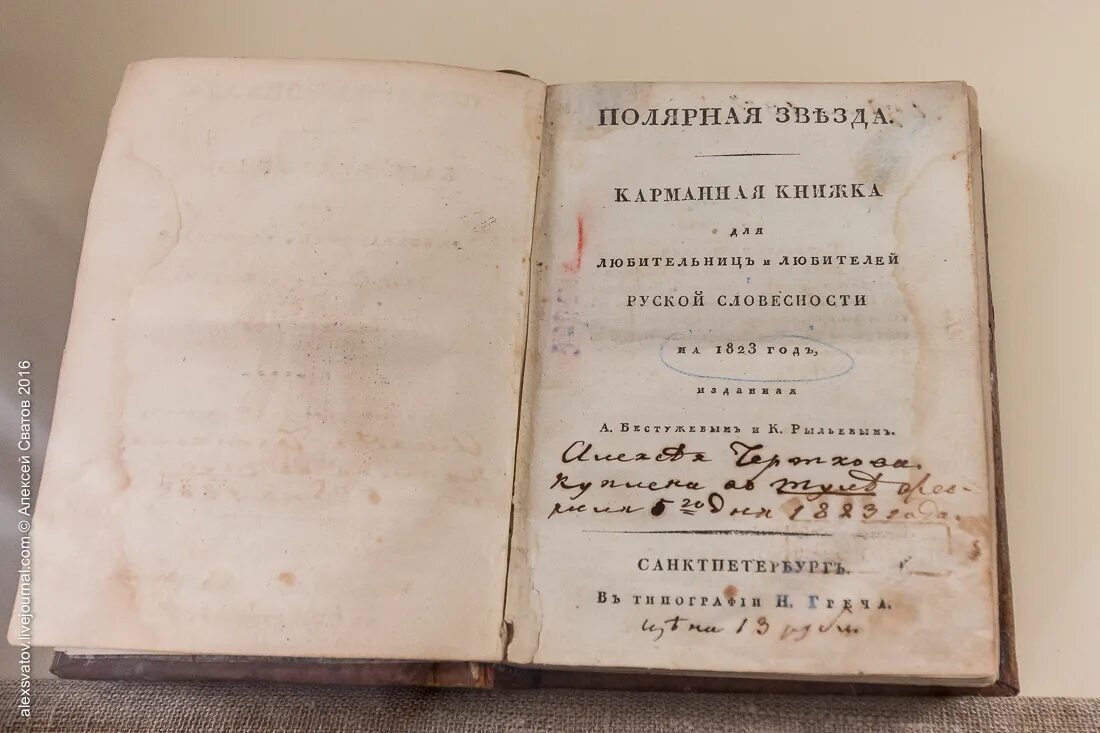 ПОЛЯРНАЯ ЗВѢЗДА.
КАРМАННАЯ КНИЖКА
ДЛЯ
ЛЮБИТЕЛЬНИЦЪ и ЛЮБИТЕЛЕЙ
РУСКОЙ СЛОВЕСНОСТИ
НА 1823 ГОДЪ,
изданная
А. Бестужевымъ и К. Рылѣевымъ.
Алексѣя Черткова.
Куплена въ Тулѣ
5го дня 1823 года.
САНКТПЕТЕРБУРГЪ.
Въ типографіи Н. Греча.
цѣна 13 рубл.
alexsvatov.livejournal.com © Алексей Сватов 2016